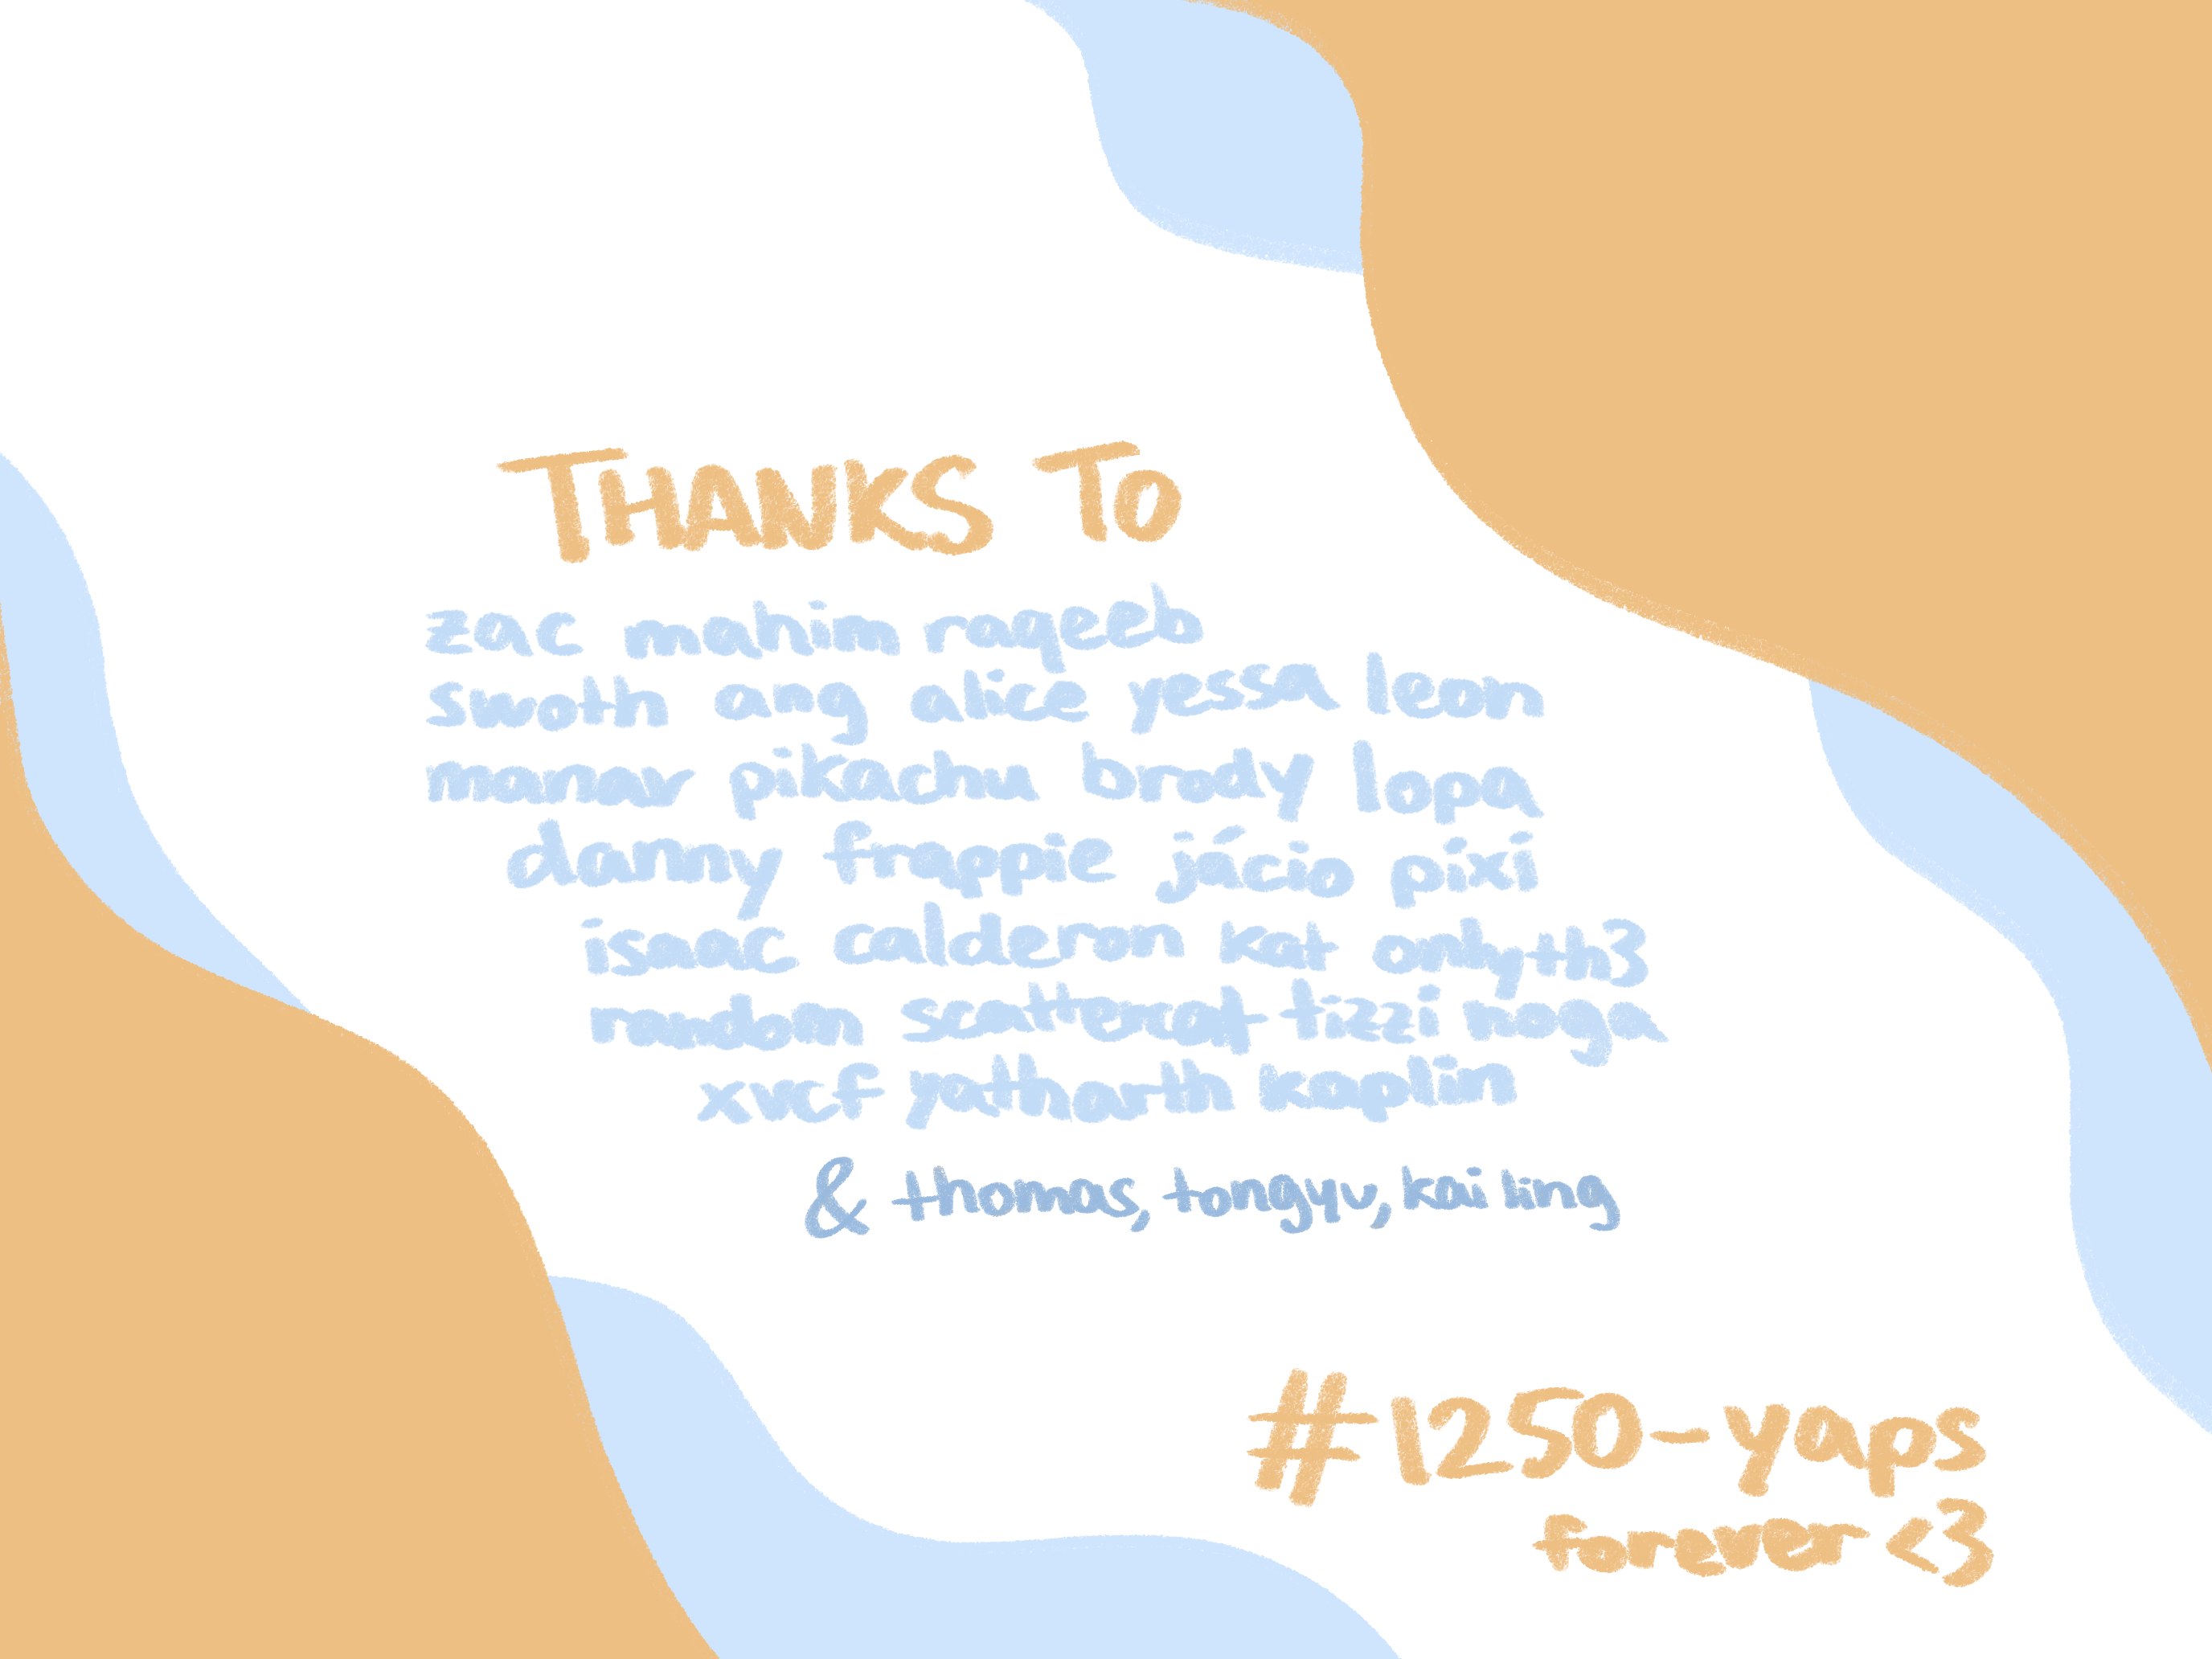 THANKS TO
zac mahim raqeeb
swoth ang alice yessa leon
manav pikachu brody lopa
danny frappie jácio pixi
isaac calderon kat onlyth3
random scattercat tizzi noga
xvcf yatharth kaplin
& thomas, tongyu, kai ling
#1250-yaps
forever <3